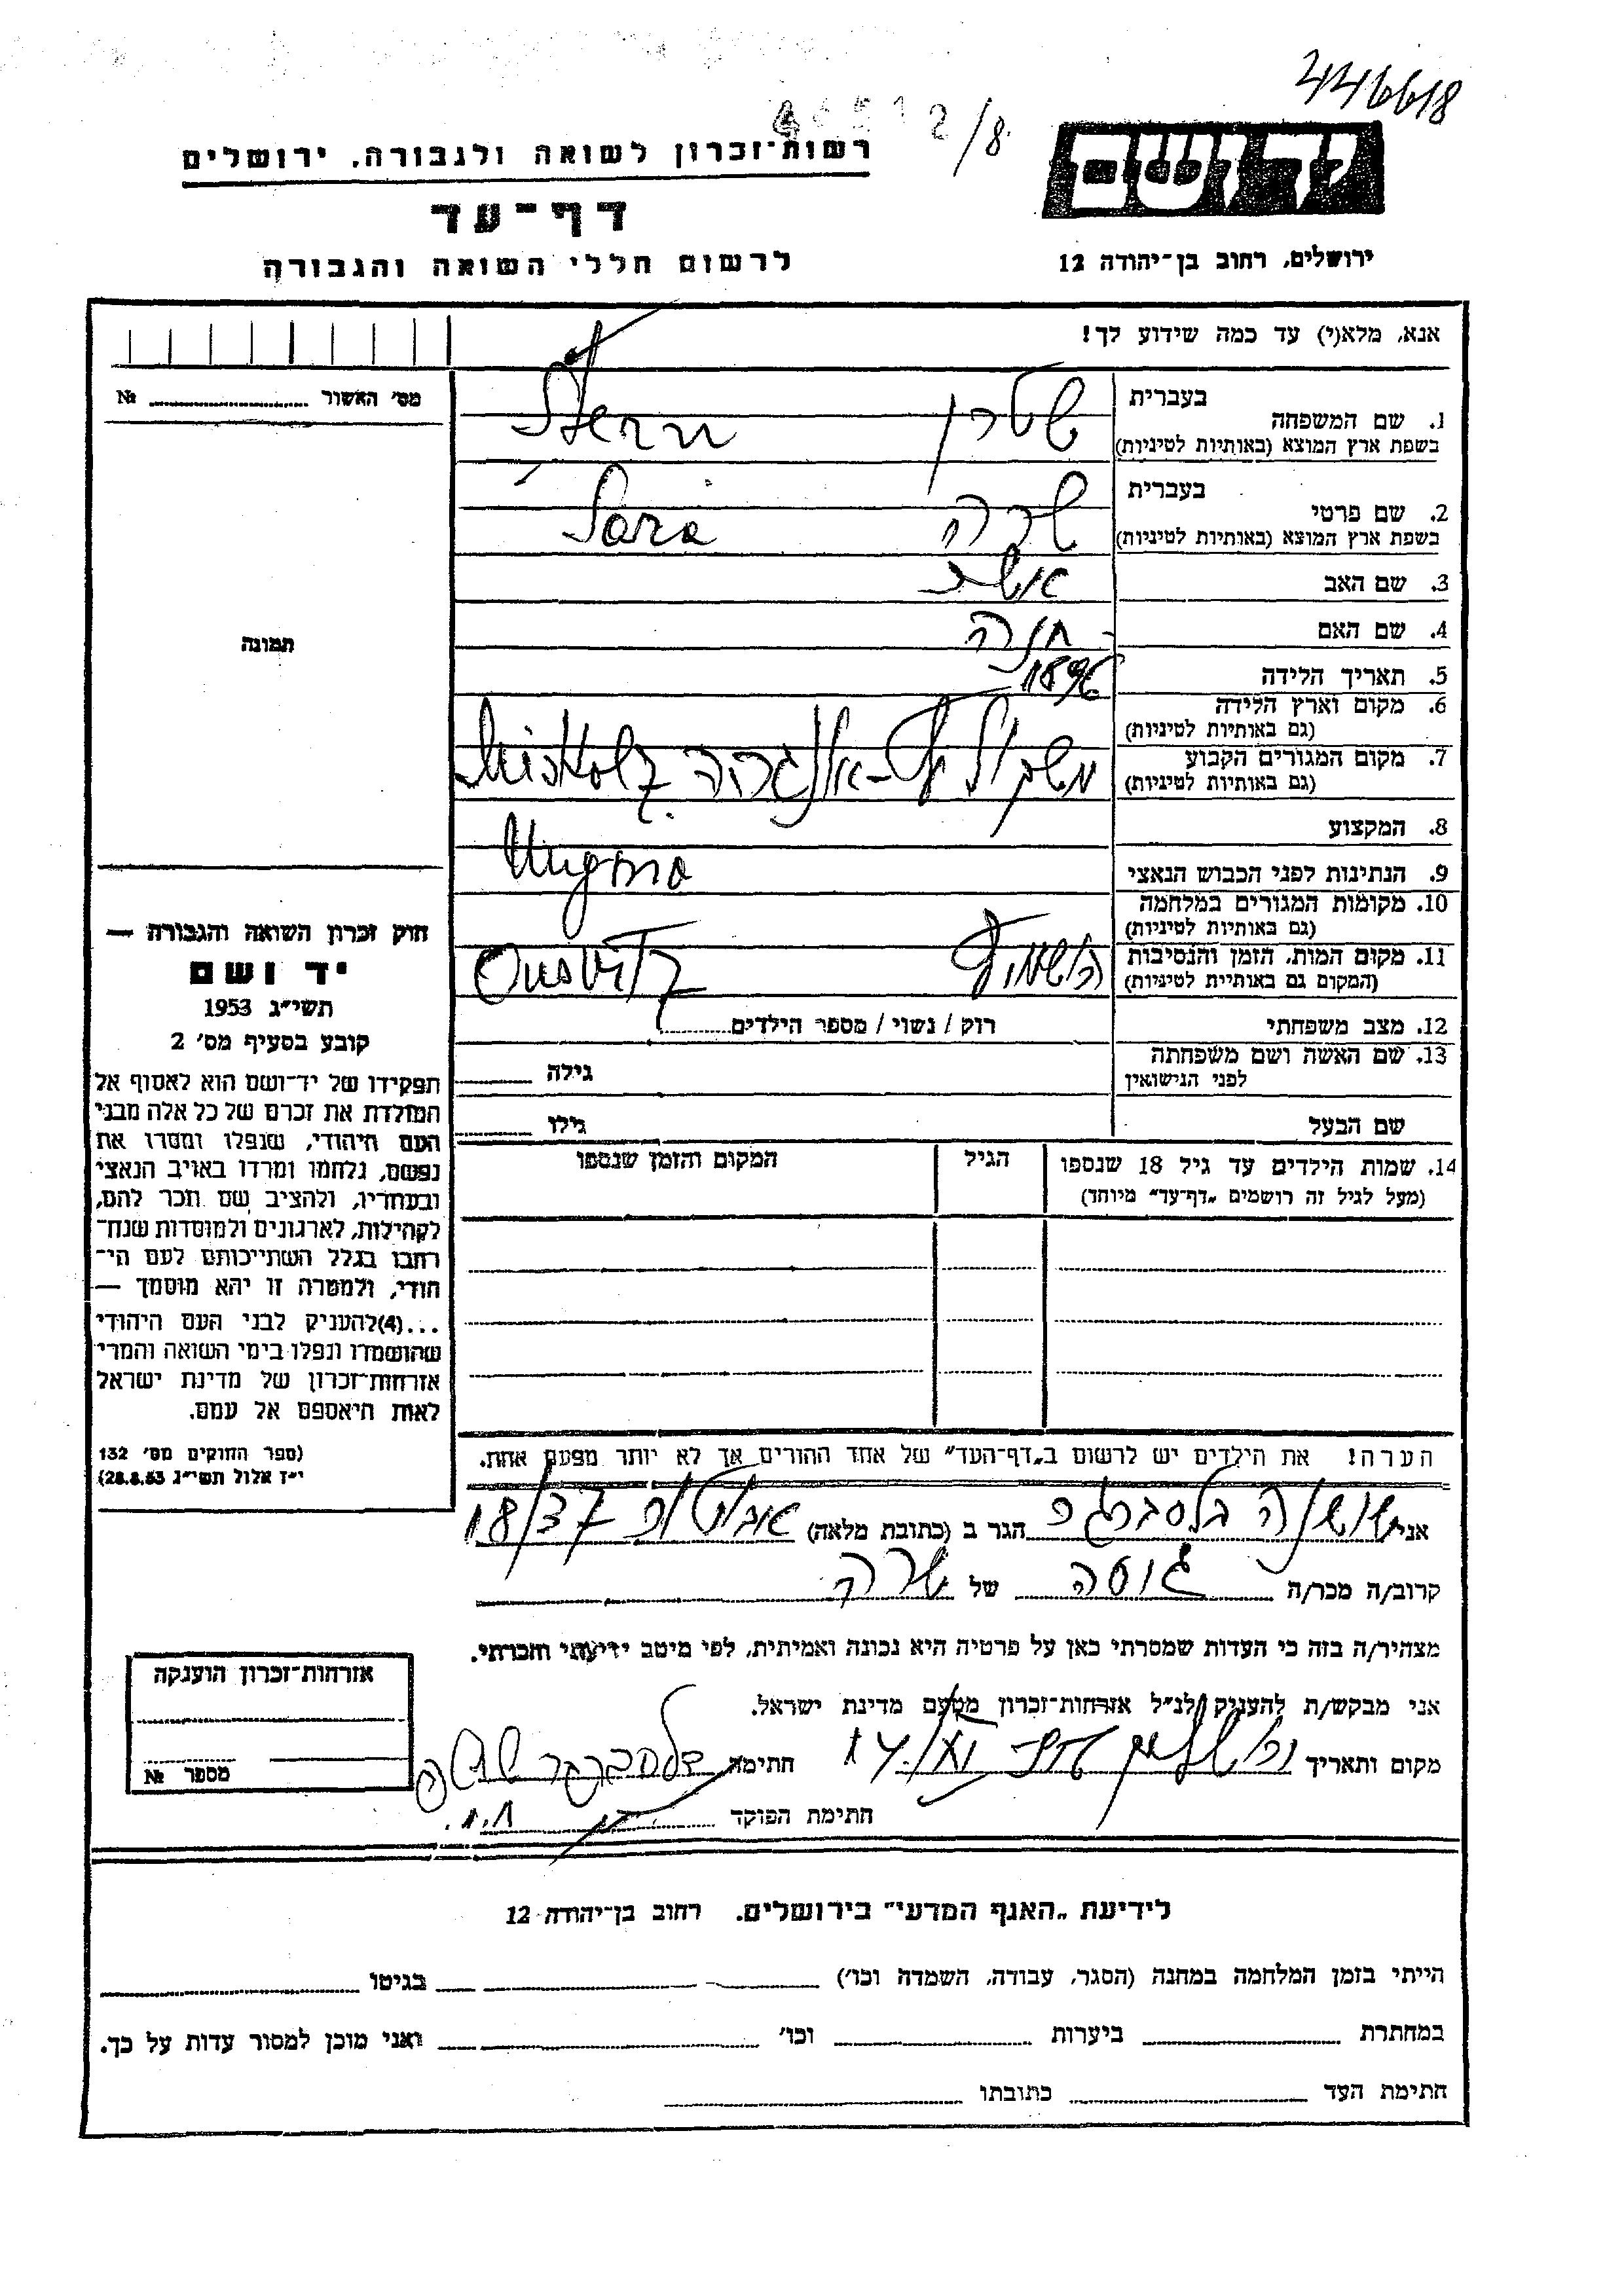 446618
2/8
רשות־זכרון לשואה ולגבורה, ירושלים
יד ושם
דף־עד
לרשום חללי השואה והגבורה
ירושלים, רחוב בן־יהודה 12
אנא, מלא(י) עד כמה שידוע לך!
מס' האשור №
תמונה
1. שם המשפחה בעברית שטרן Stern
בשפת ארץ המוצא (באותיות לטיניות)
2. שם פרטי בעברית שרה Sara
בשפת ארץ המוצא (באותיות לטיניות)
3. שם האב אשר
4. שם האם חנה
5. תאריך הלידה 1896
6. מקום וארץ הלידה
(גם באותיות לטיניות)
7. מקום המגורים הקבוע
(גם באותיות לטיניות)
Miskolz
8. המקצוע
9. הנתינות לפני הכבוש הנאצי
10. מקומות המגורים במלחמה
(גם באותיות לטיניות)
11. מקום המות, הזמן והנסיבות
(המקום גם באותיות לטיניות)
12. מצב משפחתי רוק / נשוי / מספר הילדים
13. שם האשה ושם משפחתה
לפני הנישואין גילה
שם הבעל גילו
14. שמות הילדים עד גיל 18 שנספו הגיל המקום והזמן שנספו
(מעל לגיל זה רושמים „דף־עד" מיוחד)
חוק זכרון השואה והגבורה —
יד ושם
תשי"ג 1953
קובע בסעיף מס' 2
תפקידו של יד־ושם הוא לאסוף אל
המולדת את זכרם של כל אלה מבני
העם היהודי, שנפלו ומסרו את
נפשם, נלחמו ומרדו באויב הנאצי
ובעוזריו, ולהציב שם וזכר להם,
לקהילות, לארגונים ולמוסדות שנח־
רבו בגלל השתייכותם לעם הי־
הודי, ולמטרה זו יהא מוסמך —
...(4)להעניק לבני העם היהודי
שהושמדו ונפלו בימי השואה והמרי
אזרחות־זכרון של מדינת ישראל
לאות היאספם אל עמם.
(ספר החוקים מס' 132
י"ז אלול תשי"ג 28.8.53)
הערה! את הילדים יש לרשום ב„דף־העד" של אחד ההורים אך לא יותר מפעם אחת.
אני שושנה הגר ב (כתובת מלאה) 18/37
קרוב/ה מכר/ה גיסה של שרה
מצהיר/ה בזה כי העדות שמסרתי כאן על פרטיה היא נכונה ואמיתית, לפי מיטב ידיעתי והכרתי.
אני מבקש/ת להעניק לנ"ל אזרחות־זכרון מטעם מדינת ישראל.
מקום ותאריך חתימה
חתימת הפוקד
אזרחות־זכרון הוענקה
מספר №
לידיעת „האגף המדעי" בירושלים. רחוב בן־יהודה 12
הייתי בזמן המלחמה במחנה (הסגר, עבודה, השמדה וכו') בגיטו
במחתרת ביערות וכו' ואני מוכן למסור עדות על כך.
חתימת העד כתובתו